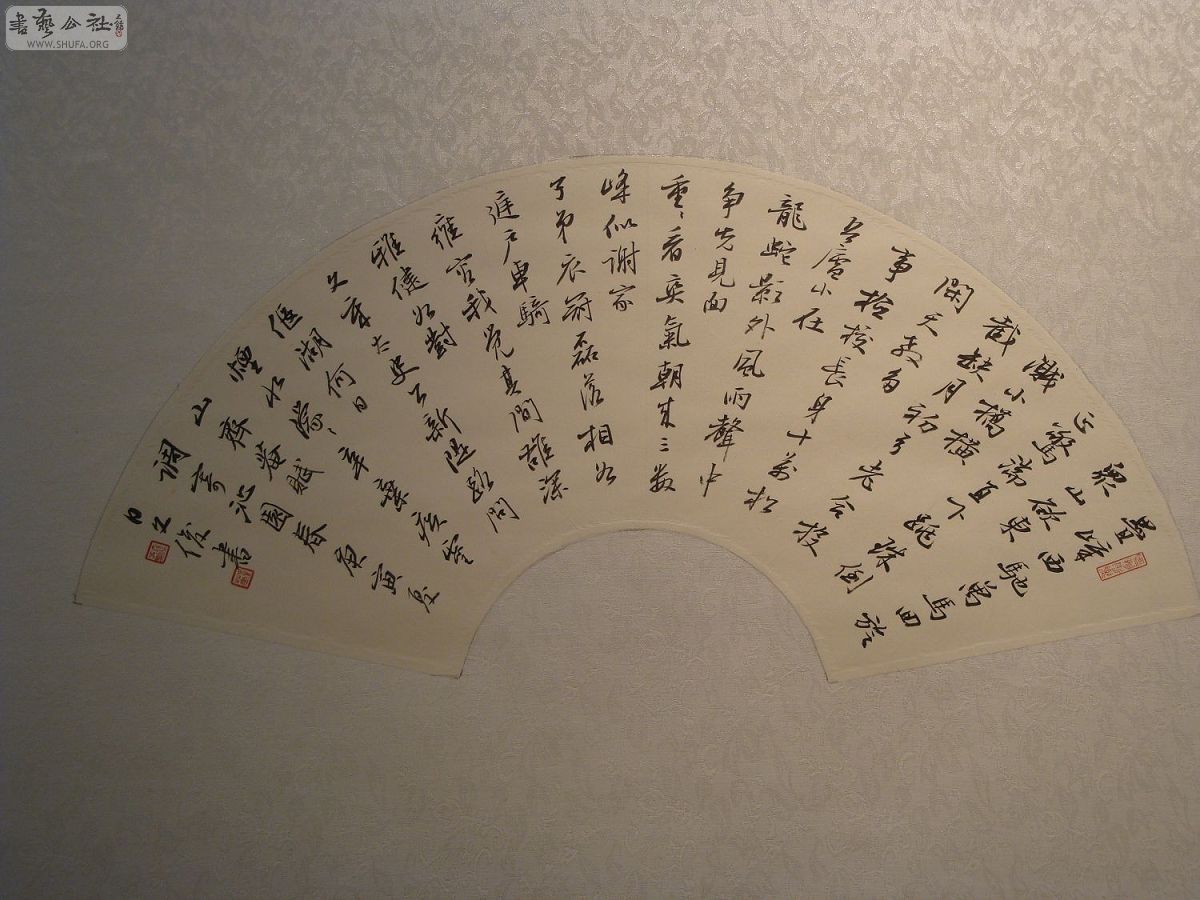 疊嶂西馳萬馬回旋
眾山欲東
正驚湍直下跳珠倒
濺小橋橫
截缺月初弓老合投
閑天教多
事檢校長身十萬松
吾廬小在
龍蛇影外風雨聲中
爭先見面
重〻看爽氣朝來三數
峰似謝家
子弟衣冠磊落相如
庭戶車騎
雍容我覺其間雄深
雅健如對
文章太史公新堤路問
偃湖何日
煙水濛〻辛棄疾靈
山齊菴賦
調寄沁園春庚寅夏
日文俊書
書藝公社
WWW.SHUFA.ORG